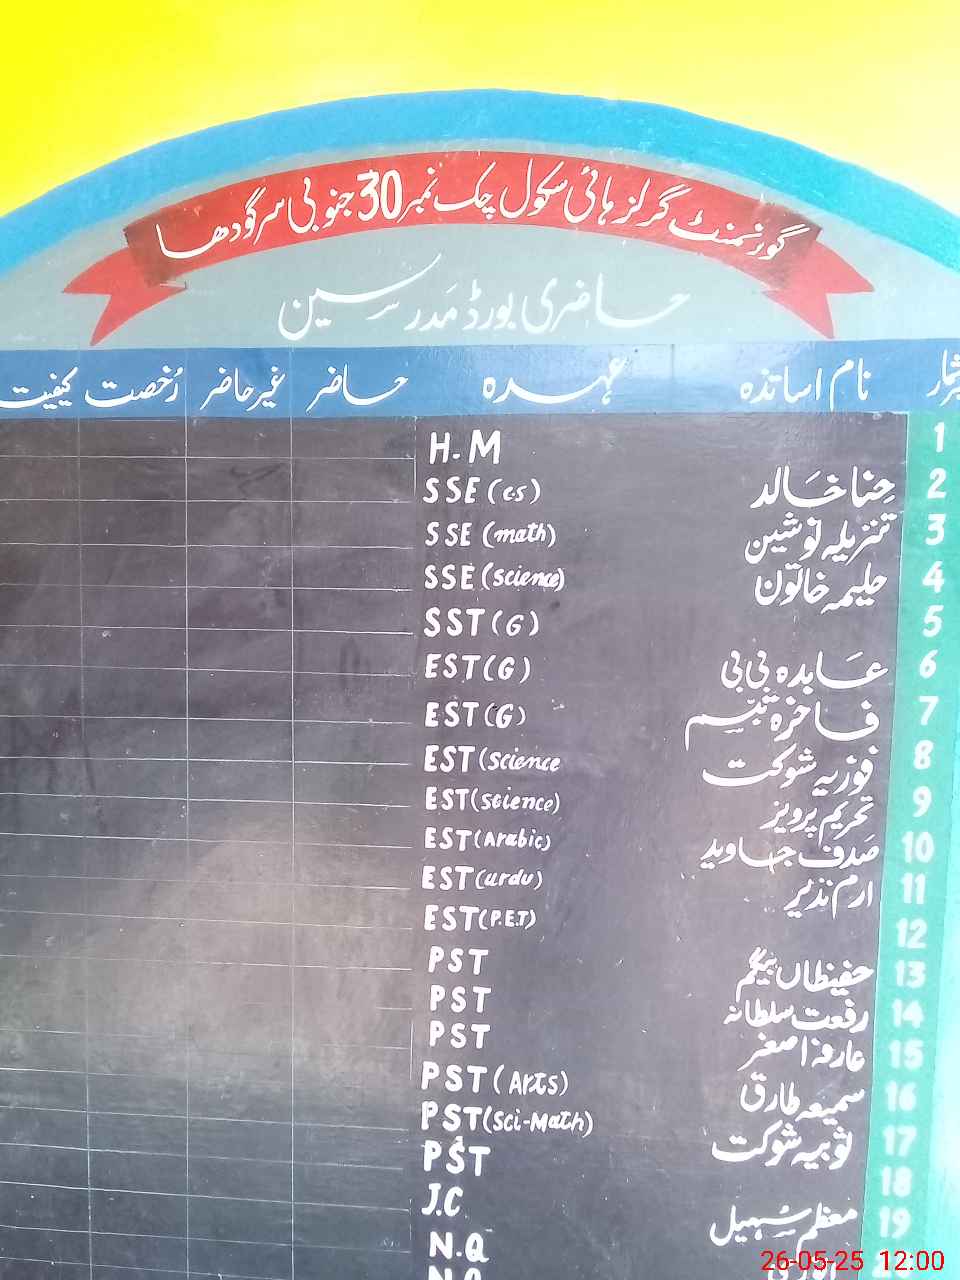 گورنمنٹ گرلز ہائی سکول چک نمبر 30 جنوبی سرگودھا
حاضری بورڈ مدرسین
نام اساتذہ عہدہ حاضر غیر حاضر رخصت کیفیت
1 H.M
2 حنا خالد SSE (cs)
3 تنزیلہ نوشین SSE (math)
4 حلیمہ خاتون SSE (science)
5 SST (G)
6 عابدہ بی بی EST (G)
7 فاخرہ تبسم EST (G)
8 فوزیہ شوکت EST (science
9 تحریم پرویز EST (science)
10 صدف جاوید EST (Arabic)
11 ارم نذیر EST (urdu)
12 EST (P.E.T)
13 حفیظاں بیگم PST
14 رفعت سلطانہ PST
15 عارفہ اصغر PST
16 سمیعہ طارق PST (Arts)
17 ثوبیہ شوکت PST (Sci-Math)
18 PST
19 معظم سہیل J.C
N.Q
26-05-25 12:00